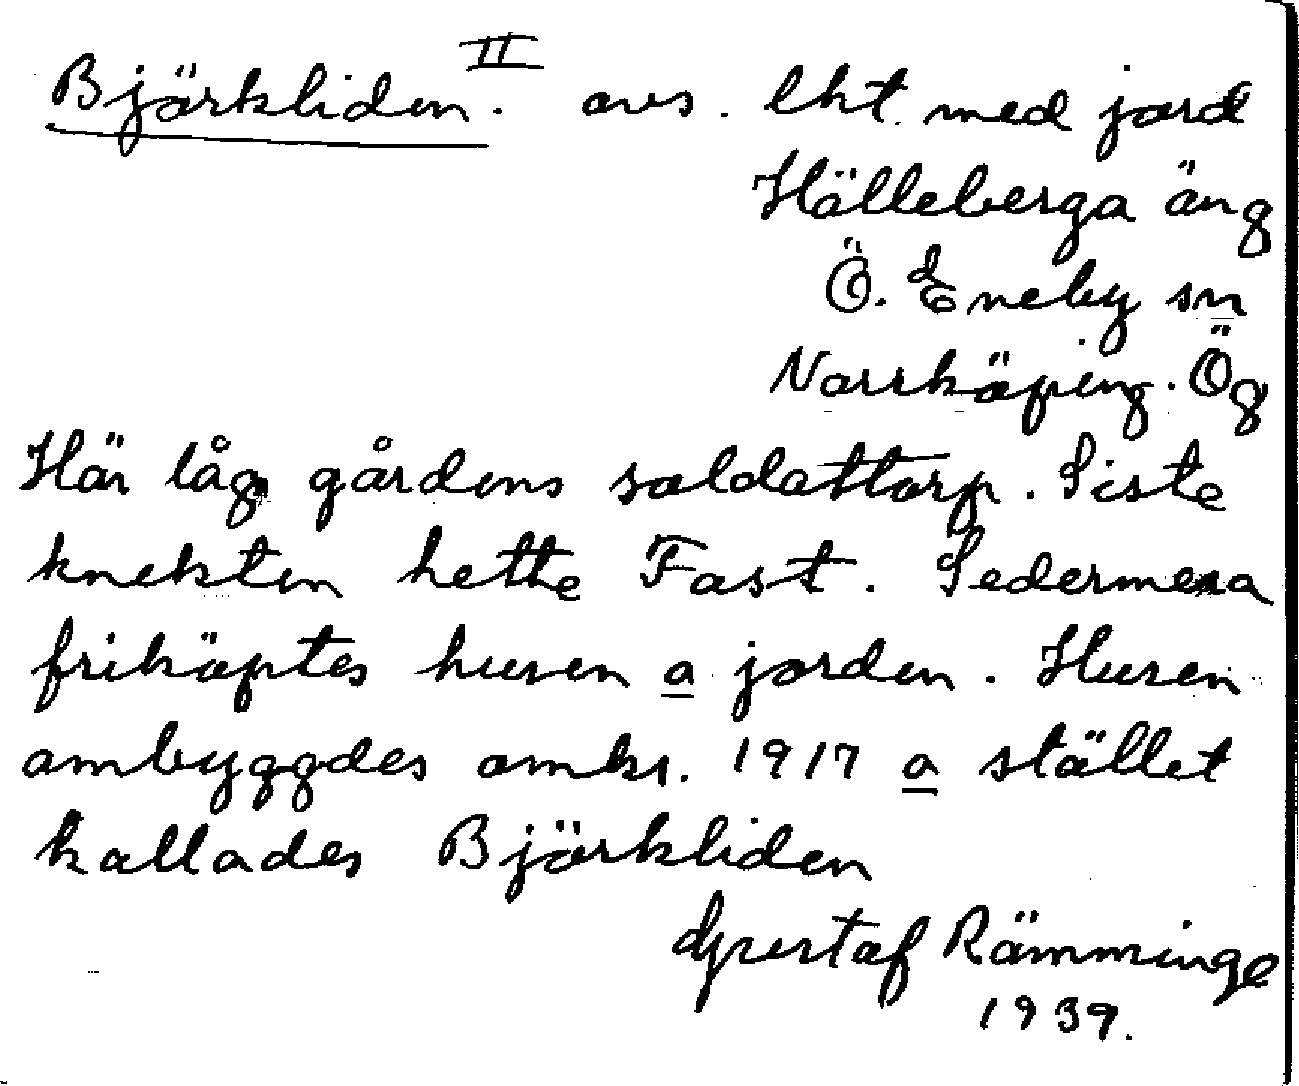 Björkliden. II avs. lht. med jord
Hälleberga äng
Ö. Eneby sn
Norrköping. Ög
Här låg gårdens soldattorp. Siste
knekten hette Fast. Sedermera
friköptes husen o jorden. Husen
ombyggdes omkr. 1917 o stället
kallades Björkliden
Gustaf Rämminge
1939.